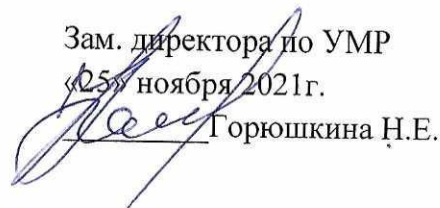 Зам. директора по УМР
«25» ноября 2021г.
__________Горюшкина Н.Е.